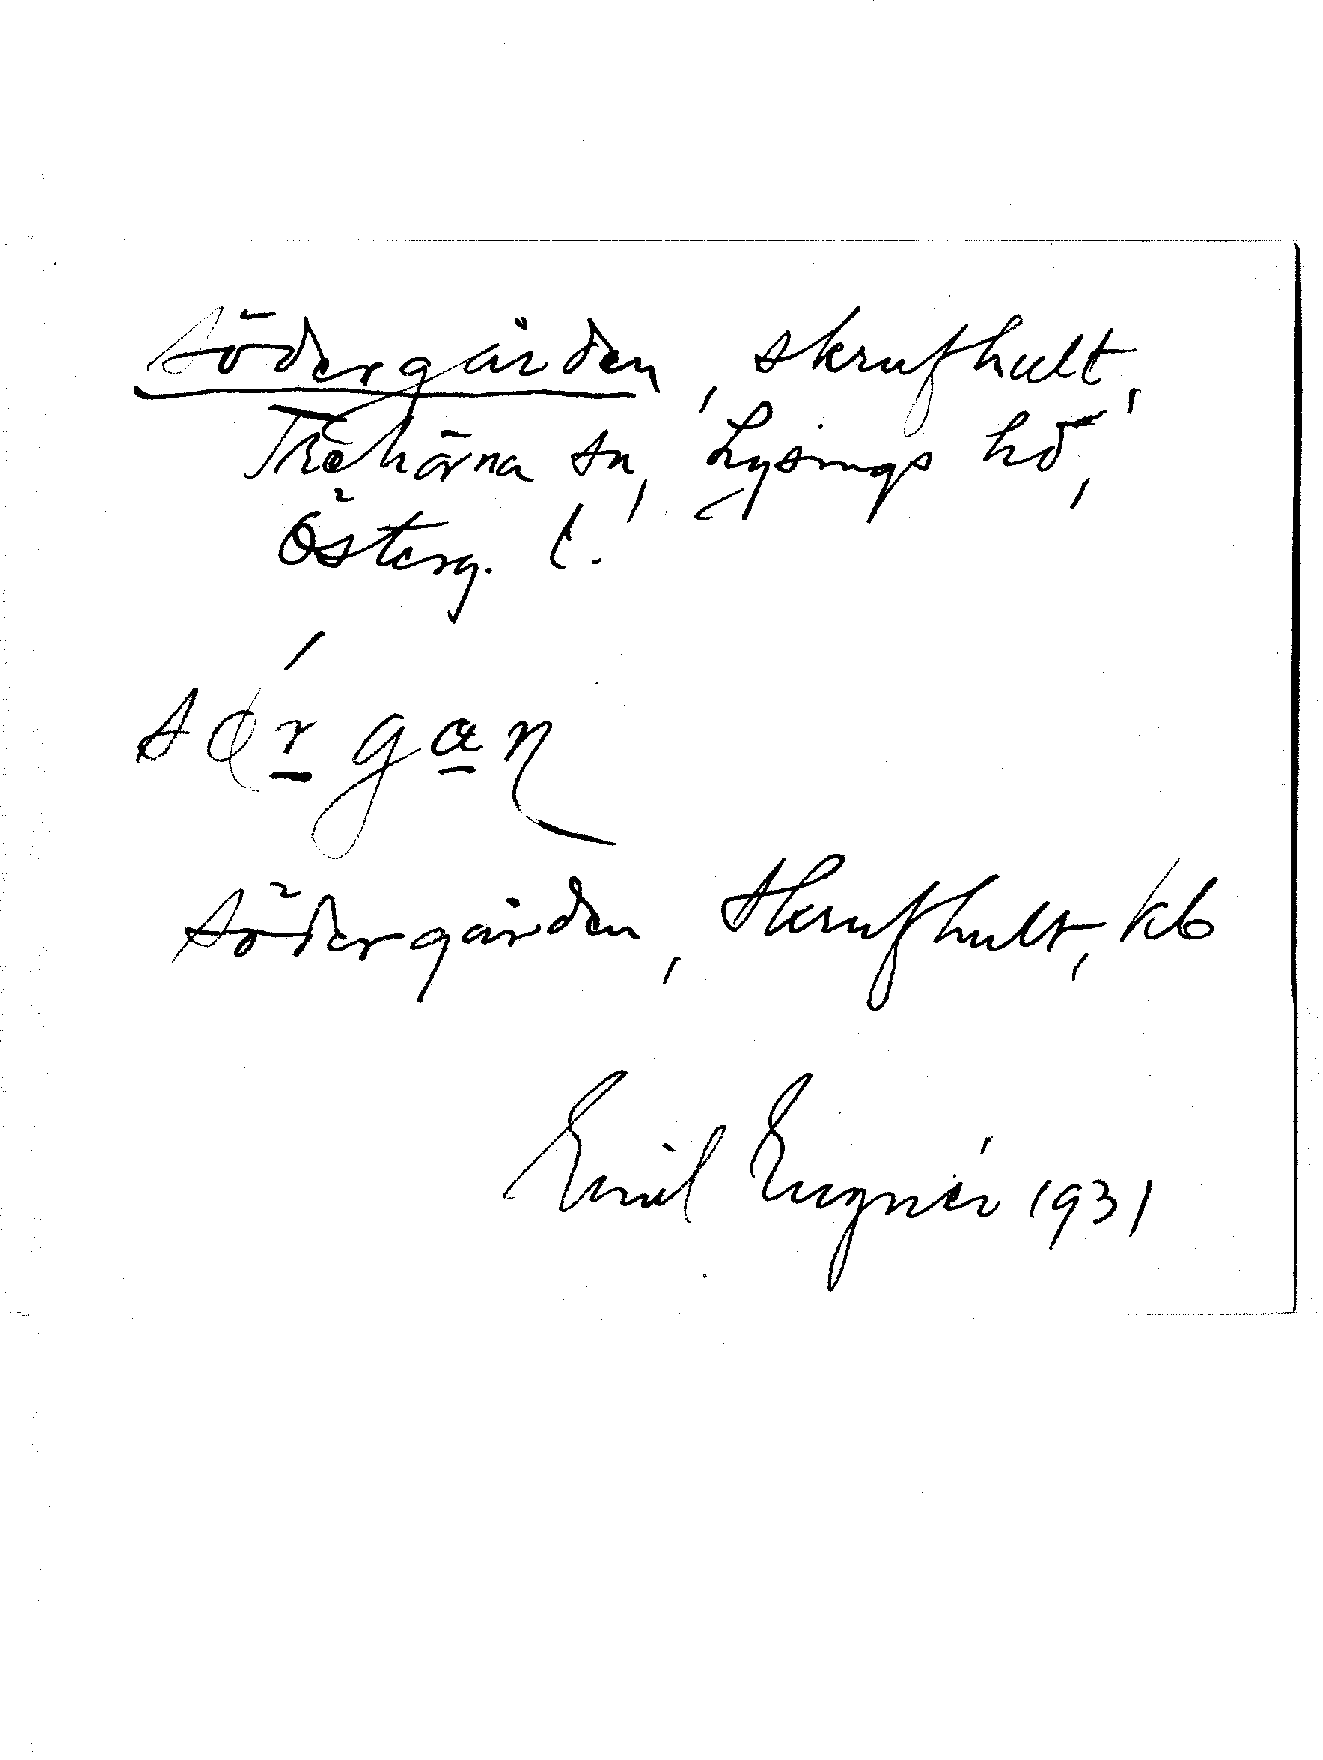 Södergården, Skrufhult,
Trehörna sn, Lysings hd,
Österg. l.
Södergården, Skrufhult, kb
Emil Eugnér 1931